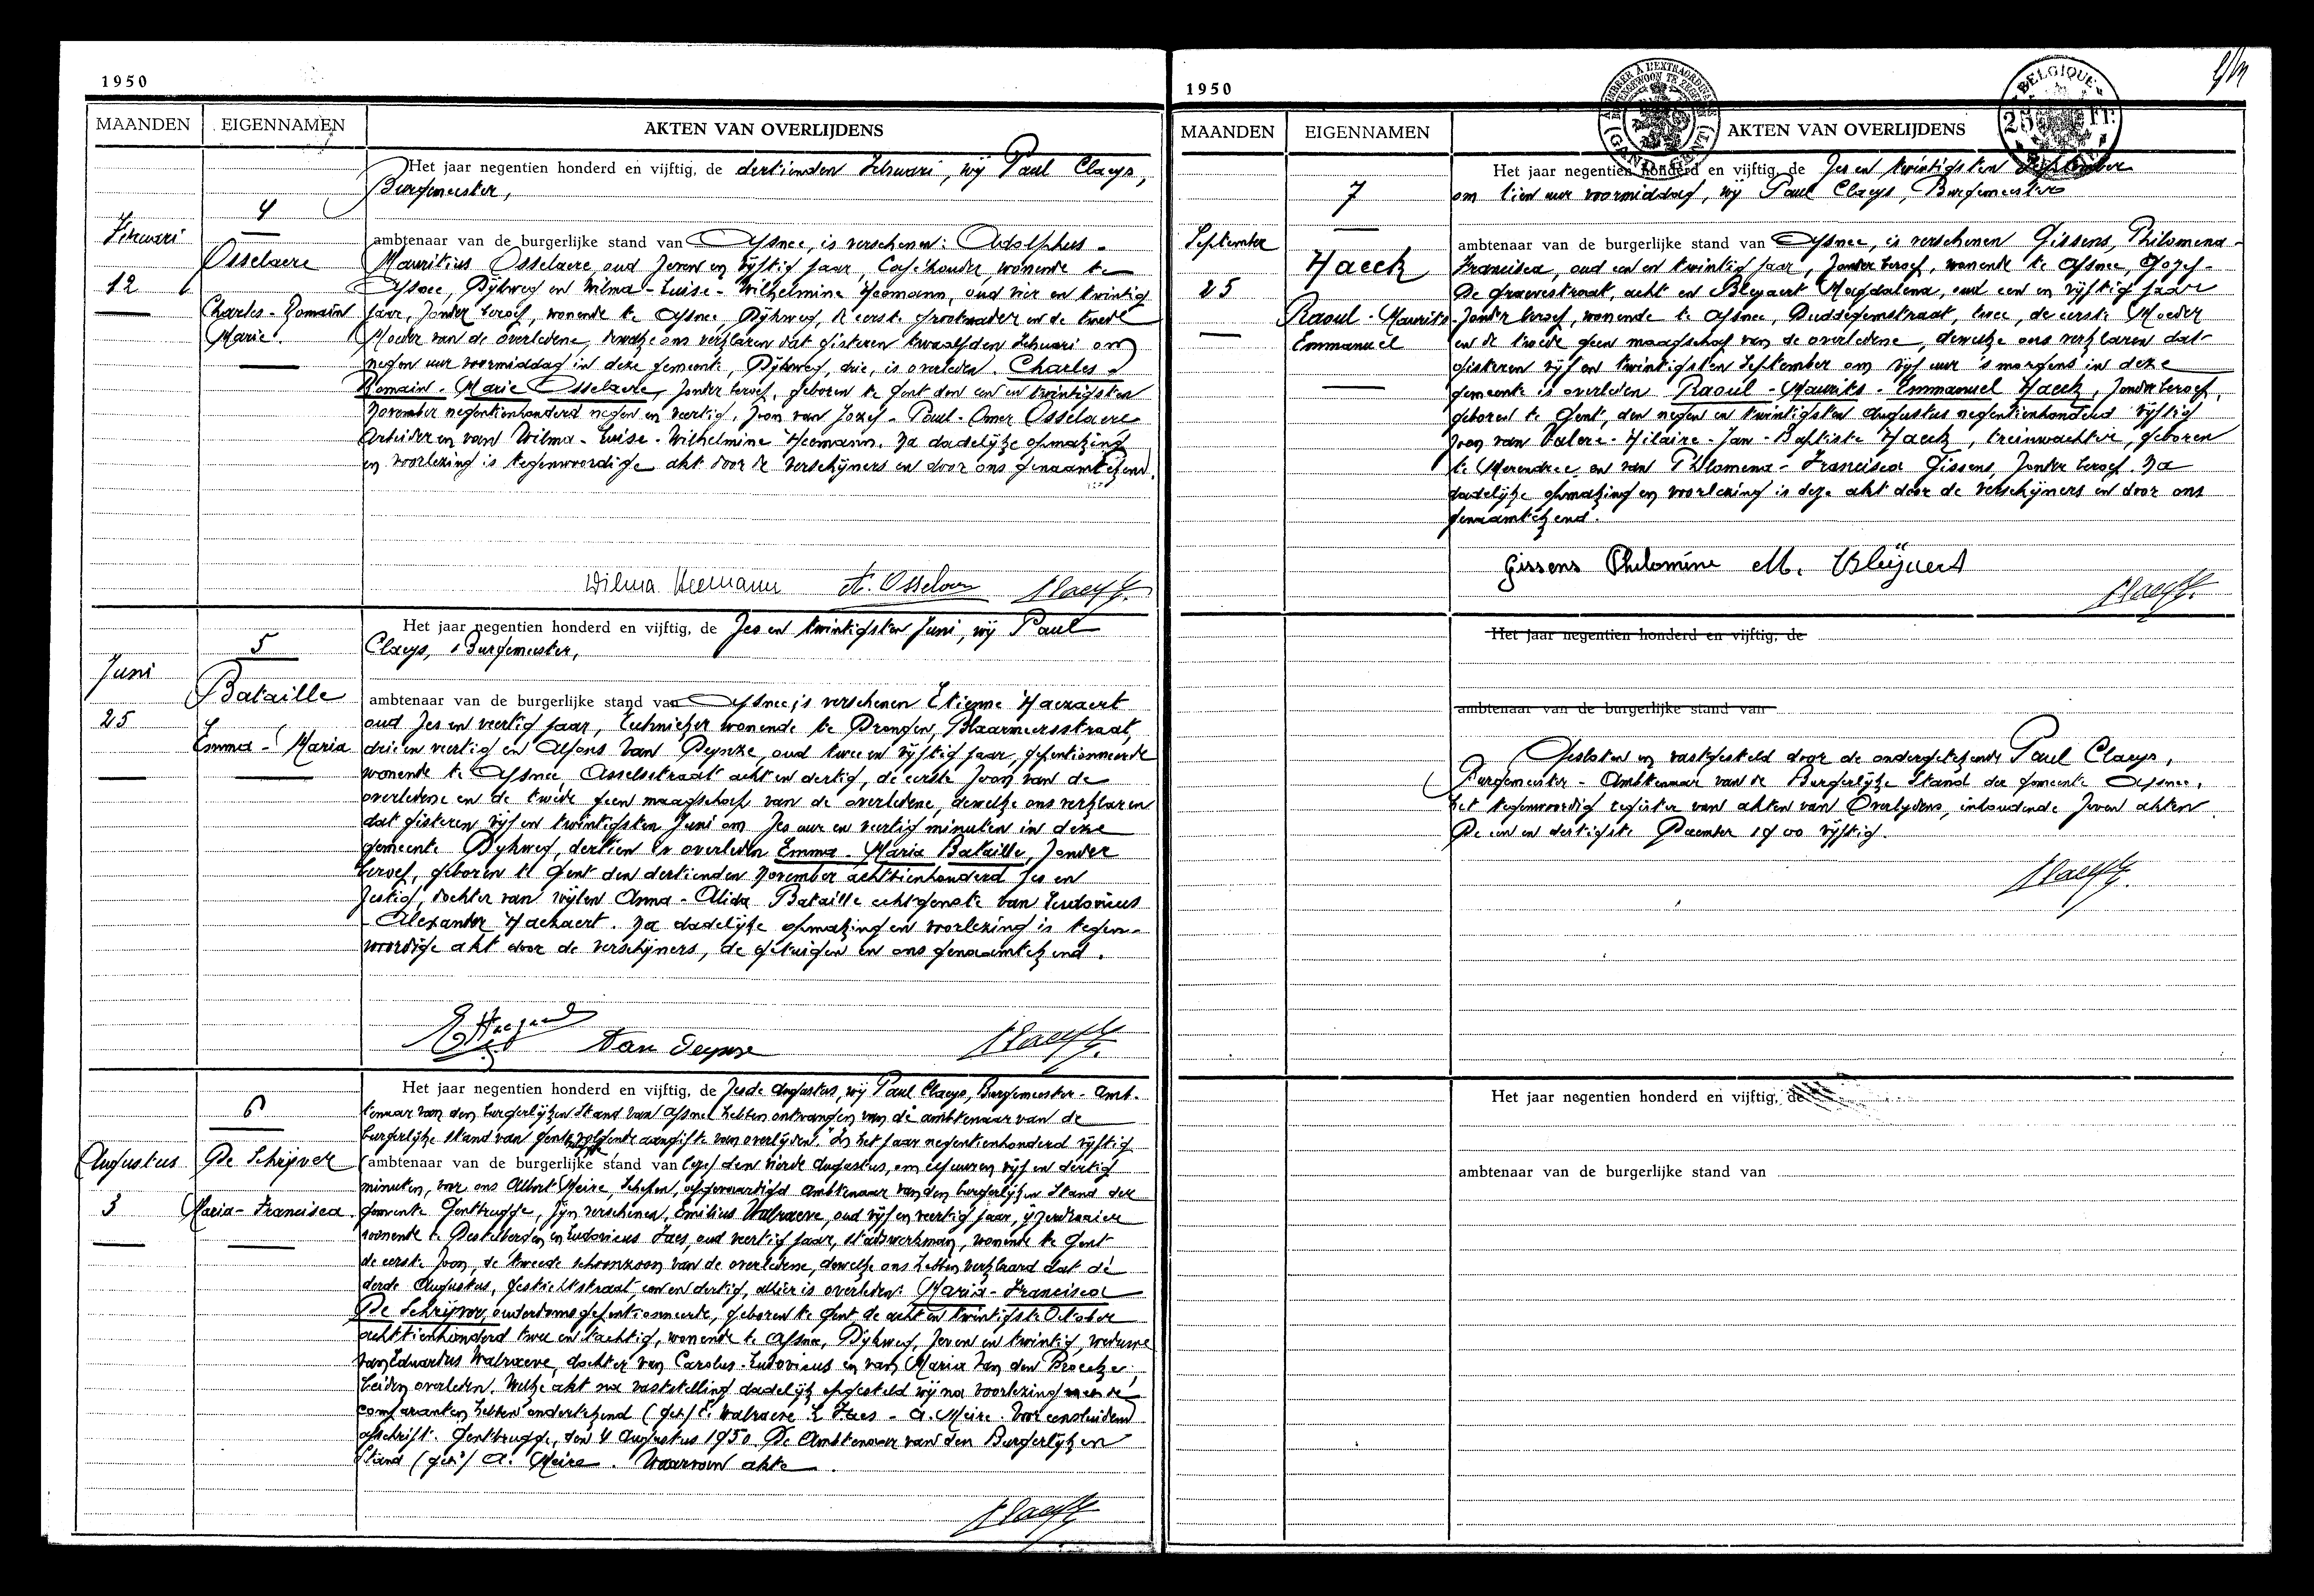 1950
MAANDEN EIGENNAMEN AKTEN VAN OVERLIJDENS
Het jaar negentien honderd en vijftig, de dertienden Februari, wij Paul Claeys,
Burgemeester,
4
Februari
12
Osselaere
Charles-Romain
Marie.
ambtenaar van de burgerlijke stand van Afsnee, is verschenen: Adolphus-
Mauritius Osselaere, oud zeven en vijftig jaar, Caféhouder, wonende te
Afsnee, Dijkweg en Wilma-Luise-Wilhelmine Heemann, oud vier en twintig
jaar, zonder beroep, wonende te Afsnee, Dijkweg, de eerste grootvader en de tweede
Moeder van de overledene, dewelke ons verklaren dat gisteren twaalfden Februari om
negen uur voormiddag in deze gemeente, Dijkweg, drie, is overleden Charles-
Romain-Marie Osselaere, zonder beroep, geboren te Gent den een en twintigsten
November negentienhonderd negen en veertig, zoon van Jozef-Paul-Omer Osselaere
Arbeider en van Wilma-Luise-Wilhelmine Heemann. Na dadelijke opmaking
en voorlezing is tegenwoordige akt door de verschijners en door ons genaamtekend.
Wilma Heemann A. Osselaer Claeys
5
Juni
25
Bataille
Emma-Maria
Het jaar negentien honderd en vijftig, de zes en twintigsten Juni, wij Paul
Claeys, Burgemeester,
ambtenaar van de burgerlijke stand van Afsnee is verschenen Etienne Haezaert
oud zes en veertig jaar, technieker wonende te Drongen, Blaarmeersstraat,
drie en veertig en Alfons Van Deynze, oud twee en vijftig jaar, gepentionneerde
wonende te Afsnee Asselsstraat acht en dertig, de eerste zoon van de
overledene en de tweede geen maagschap van de overledene, dewelke ons verklaren
dat gisteren vijf en twintigsten Juni om zes uur en veertig minuten in deze
gemeente Dijkweg, dertien is overleden Emma-Maria Bataille, zonder
beroep, geboren te Gent den dertienden November achttienhonderd zes en
zestig, dochter van wijlen Anna-Alida Bataille echtgenote van Ludovicus
-Alexander Haezaert. Na dadelijke opmaking en voorlezing is tegen-
woordige akt door de verschijners, de getuigen en ons genaamtekend.
Van Deynze Claeys
6
Augustus
3
De Schrijver
Maria-Francisca
Het jaar negentien honderd en vijftig, de zesde Augustus, wij Paul Claeys, Burgemeester-Amb-
tenaar van den burgerlijken Stand van Afsnee hebben ontvangen van de ambtenaar van de
burgerlijke stand van Gentbrugge volgende aangifte van overlijden. "In het jaar negentienhonderd vijftig
ambtenaar van de burgerlijke stand van den vierde Augustus, om elf uur en vijf en dertig
minuten, voor ons Albert Meire, Schepen, afgevaardigd Ambtenaar van den burgerlijken Stand der
gemeente Gentbrugge, zijn verschenen, Emilius Walraeve, oud vijf en veertig jaar, ijzerdraaier
wonende te Destelbergen en Ludovicus Faes, oud veertig jaar, stadswerkman, wonende te Gent
de eerste zoon, de tweede schoonzoon van de overledene, dewelke ons hebben verklaard dat de
derde Augustus, Gestichtstraat, een en dertig, alhier is overleden: Maria-Francisca
De Schrijver, ouderdomsgepentionneerde, geboren te Gent de acht en twintigste October
achttienhonderd twee en tachtig, wonende te Afsnee, Dijkweg, zeven en twintig, weduwe
van Eduardus Walraeve, dochter van Carolus-Ludovicus en van Maria Van den Broecke,
beiden overleden. Welke akt na vaststelling dadelijk opgesteld wij na voorlezing met de
comparanten hebben ondertekend (get.) E. Walraeve L. Faes - A. Meire. Voor eensluidend
afschrift. Gentbrugge, den 4 Augustus 1950 De Ambtenaar van den Burgerlijken
Stand (get.) A. Meire. Waarvan akte
Claeys
1950
BELGIQUE
25 FR.
GAND GENT
MAANDEN EIGENNAMEN AKTEN VAN OVERLIJDENS
7
September
25
Haeck
Raoul-Maurits-
Emmanuel
Het jaar negentien honderd en vijftig, de zes en twintigsten September
om tien uur voormiddag, wij Paul Claeys, Burgemeester
ambtenaar van de burgerlijke stand van Afsnee, is verschenen Gissens, Philomena-
Francisca, oud een en twintig jaar, zonder beroep, wonende te Afsnee, Jozef-
De graevestraat, acht en Bleyaert Magdalena, oud een en vijftig jaar
zonder beroep, wonende te Afsnee, Duddegemstraat, twee, de eerste Moeder
en de tweede geen maagschap van de overledene, dewelke ons verklaren dat
gisteren vijf en twintigsten September om vijf uur 's morgens in deze
gemeente is overleden Raoul-Maurits-Emmanuel Haeck, zonder beroep,
geboren te Gent, den negen en twintigsten Augustus negentienhonderd vijftig
zoon van Valere-Hilaire-Jan-Baptiste Haeck, treinwachter, geboren
te Merendree en van Philomena-Francisca Gissens, zonder beroep. Na
dadelijke opmaking en voorlezing is deze akt door de verschijners en door ons
genaamtekend.
Gissens Philomène M. Bleÿaert
Claeys
Het jaar negentien honderd en vijftig, de
ambtenaar van de burgerlijke stand van
Gesloten en vastgesteld door de ondergetekende Paul Claeys,
Burgemeester-Ambtenaar van de Burgerlijke Stand der gemeente Afsnee,
het tegenwoordig register van akten van Overlijdens, inhoudende zeven akten
De een en dertigste December 1900 vijftig.
Claeys
Het jaar negentien honderd en vijftig, de
ambtenaar van de burgerlijke stand van